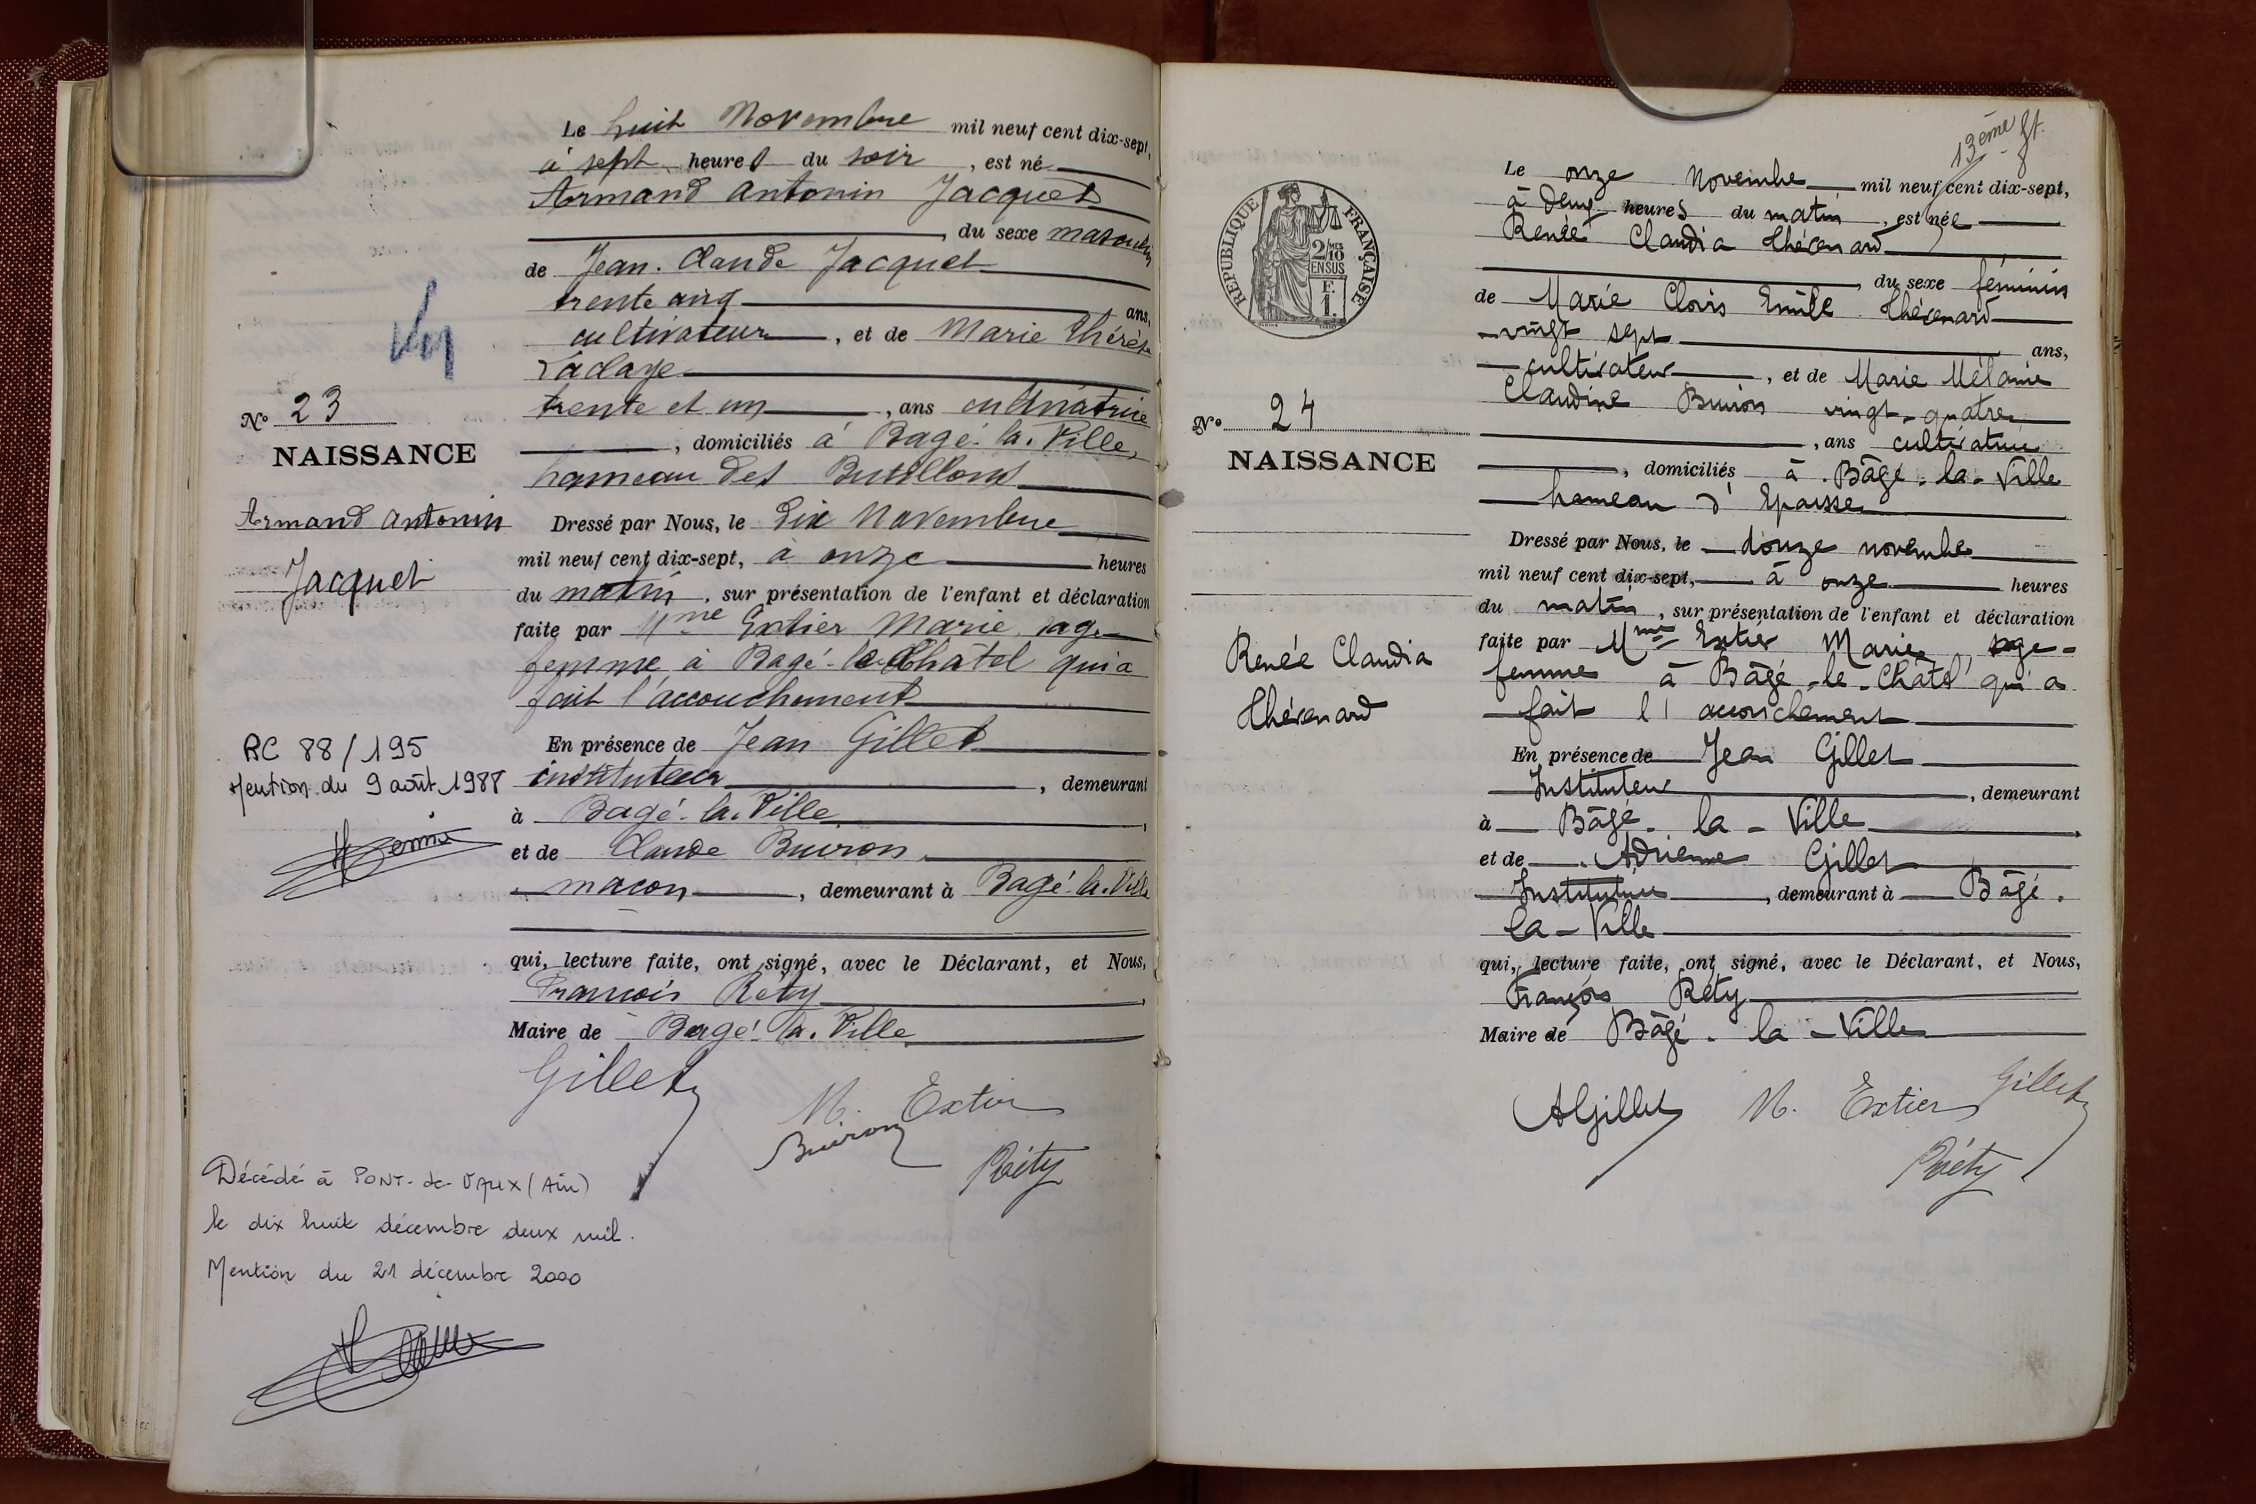 Le huit Novembre mil neuf cent dix-sept,
à sept heures du soir, est né
Armand Antonin Jacquet
, du sexe masculin
de Jean-Claude Jacquet
trente cinq ans,
cultivateur, et de Marie Thérèse
trente et un, ans cultivatrice
, domiciliés à Bagé-la-Ville,
hameau des Butillons
Dressé par Nous, le dix Novembre
mil neuf cent dix-sept, à onze heures
du matin, sur présentation de l'enfant et déclaration
faite par Mme Extier Marie sage-
femme à Bagé-le-Châtel qui a
fait l'accouchement
En présence de Jean Gillet
instituteur, demeurant
à Bagé-la-Ville
et de Claude Buiron
maçon, demeurant à Bagé-la-Ville
qui, lecture faite, ont signé, avec le Déclarant, et Nous,
François Réty
Maire de Bagé-la-Ville
Gillet
M. Extier
Buiron
Réty
No 23
NAISSANCE
Armand Antonin
Jacquet
RC 88/195
Mention du 9 août 1988
Décédé à PONT-de-VAUX (Ain)
le dix huit décembre deux mil.
Mention du 21 décembre 2000
13ème ft.
Le onze Novembre mil neuf cent dix-sept,
à deux heures du matin, est née
Renée Claudia Thérenard
, du sexe féminin
de Marie Clovis Emile Thérenard
vingt sept ans,
cultivateur, et de Marie Mélanie
Claudine Buiron vingt-quatre
, ans cultivatrice
, domiciliés à Bâgé-la-Ville
hameau d'Epaisse
Dressé par Nous, le douze novembre
mil neuf cent dix-sept, à onze heures
du matin, sur présentation de l'enfant et déclaration
faite par Mme Extier Marie, sage-
femme à Bâgé-le-Châtel qui a
fait l'accouchement
En présence de Jean Gillet
Instituteur, demeurant
à Bâgé-la-Ville
et de Adrienne Gillet
Institutrice, demeurant à Bâgé-
la-Ville
qui, lecture faite, ont signé, avec le Déclarant, et Nous,
François Réty
Maire de Bâgé-la-Ville
AGillet M. Extier Gillet
Réty
RÉPUBLIQUE FRANÇAISE
2/10 MES
EN SUS
F.
1.
No 24
NAISSANCE
Renée Claudia
Thérenard